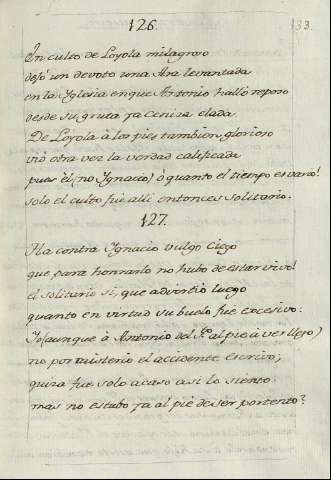 126.
133.
En culto de Loyola milagroso
dejó un devoto una Ara levantada
en la Yglesia en que Antonio halló reposo
desde su gruta ya ceniza elada.
De Loyola à los pies tambien glorioso
vió otra vez la verdad calificada
pues él (no Ygnacio) ó quanto el tiempo es vario!
solo el culto fue alli entonces solitario.
127.
Ha contra Ygnacio vulgo ciego
que para honrarlo no hubo de estar vivo!
el solitario si, que advirtió luego
quanto en virtud su buelo fué excesivo:
Yo (aunque à Antonio del Sº. al pie à ver llego)
no por misterio el accidente escrivo;
quiza fue solo acaso asi lo siento
mas no estubo ya al pie de ser portento?